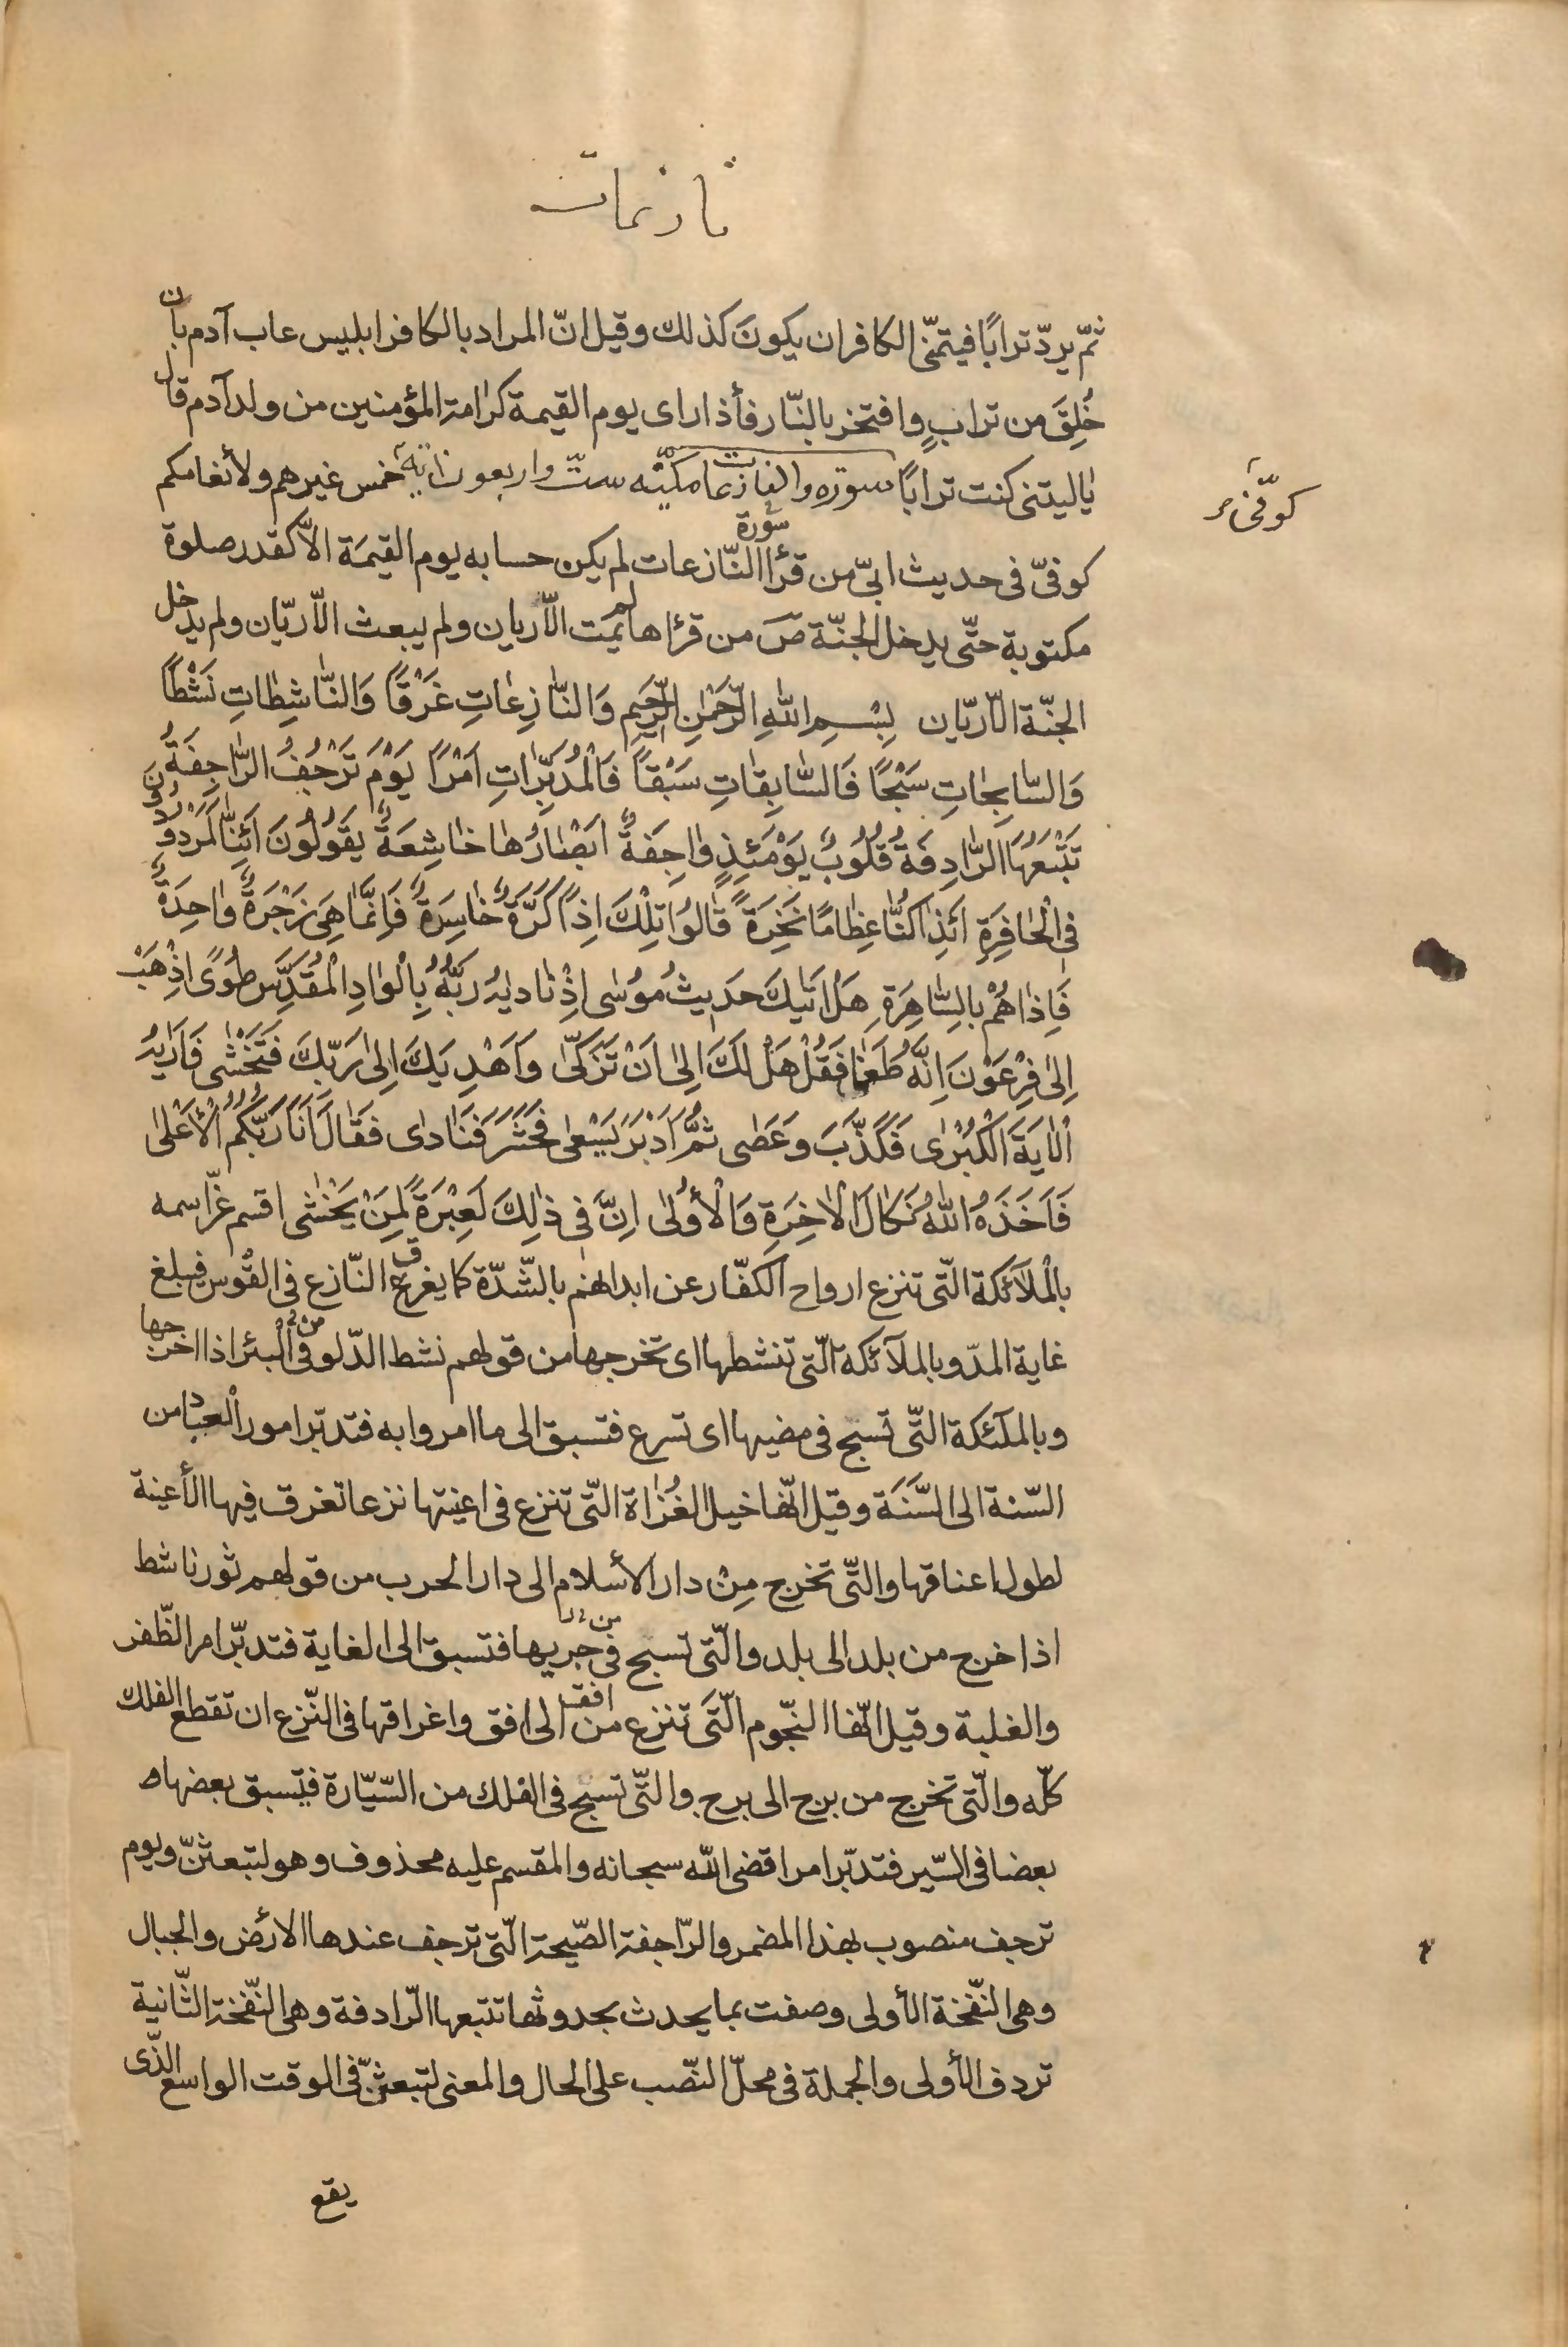 نازعات
ثمّ يردّ ترابًا فيتمنّى الكافر ان يكونَ كذلك وقيل انّ المراد بالكافر ابليس عاب آدم بان
خُلِقَ من ترابٍ وافتخر بالنّار فأذا راى يوم القيمة كرامة المؤمنين من ولد آدم قال
يٰاليتنى كنت ترابًا سورة والنازعات مكيّه ستّ واربعون اٰية خمس غيرهم ولأنعامكم
كوفىّ
كوفىّ فى حديث ابىّ من قرأ سورة النّازعات لم يكن حسابه يوم القيمَة الاّ كقدر صلوة
مكتوبة حتّى يدخل الجنّة صَ من قرئها لم يَمت الاّ ريان ولم يبعث الاّ ريّان ولم يدخل
الجنّة الاّ ريّان بِسْمِ اللّٰهِ الرَّحْمٰنِ الرَّحيمِ وَالنّٰازِعٰاتِ غَرْقًا وَالنّٰاشِطٰاتِ نَشْطًا
وَالسّٰابِحٰاتِ سَبْحًا فَالسّٰابِقٰاتِ سَبْقًا فَالْمُدَبِّرٰاتِ اَمْرًا يَوْمَ تَرْجُفُ الرّٰاجِفَةُ
تَتْبَعُهَا الرّٰادِفَةُ قُلُوبٌ يَوْمَئِذٍ وٰاجِفَةٌ اَبْصٰارُهٰا خٰاشِعَةٌ يَقُولُونَ اَئِنّٰا لَمَرْدُودُونَ
فِى الْحٰافِرَةِ اَئِذٰا كُنّٰا عِظٰامًا نَخِرَةً قٰالُوا تِلْكَ اِذًا كَرَّةٌ خٰاسِرَةٌ فَاِنَّمٰا هِىَ زَجْرَةٌ وٰاحِدَةٌ
فَاِذٰا هُمْ بِالسّٰاهِرَةِ هَلْ اَتٰيكَ حَديثُ مُوسٰى اِذْ نٰاديٰهُ رَبُّهُ بِالْوٰادِ الْمُقَدَّسِ طُوًى اِذْهَبْ
اِلىٰ فِرْعَوْنَ اِنَّهُ طَغىٰ فَقُلْ هَلْ لَكَ اِلىٰ اَنْ تَزَكّٰى وَاَهْدِيَكَ اِلىٰ رَبِّكَ فَتَخْشٰى فَاَرٰيهُ
الْاٰيَةَ الْكُبْرٰى فَكَذَّبَ وَعَصٰى ثُمَّ اَدْبَرَ يَسْعىٰ فَحَشَرَ فَنٰادٰى فَقٰالَ اَنَا رَبُّكُمُ الْأَعْلىٰ
فَاَخَذَهُ اللّٰهُ نَكٰالَ الْاٰخِرَةِ وَالْأُولٰى اِنَّ فى ذٰلِكَ لَعِبْرَةً لِمَنْ يَخْشٰى اقسم عزّ اسمه
بالْملآئكة الّتى تنزع ارواح الكفّار عن ابدانهم بالشّدّة كما يغرق النّازع فى القوس فيبلغ
غاية المدّ وبالملآئكة الّتى تنشطها اى تخرجها من قولهم نشط الدّلو من البئر اذا اخرجها
وبالملٓئكة الّتى تسبح فى مضيها اى تسرع فتسبق الى ما امروا به فتدبّر امور العباد من
السّنة الى السَّنَة وقيل انّها خيل الغُزٰاة الّتى تنزع فى اعنيتها نزعا تغرق فيها الأعينة
لطول اعناقها والتّى تخرج مِنْ دار الأسلام الى دار الحرب من قولهم ثور ناشط
اذا خرج من بلد الى بلد والّتى تسبح فى جريها فتسبق الى الغاية فتدبّر امر الظّفر
والغلبة وقيل انّها النجّوم الّتى تنزع من افق الى افق واغراقها فى النّزع ان تقطع الفلك
كلّه والّتى تخرج من برج الى برج والتّى تسبح فى الفلك من السّيّارة فيتسبق بعضها
بعضا فى السّير فتدبّر امرا قضى اللّه سبحانه والمقسم عليه محذوف وهو لتبعثنّ ويوم
ترجف منصوب بهذا المضمر والرّاجفة الصّيحة الّتى ترجف عندها الارض والجبال
وهى النفّخة الأولى وصفت بما يحدث بحدوثها تتبعها الرّادفة وهى النفّخة الثّانية
تردف الأولى والجملة فى محلّ النّصب على الحال والمعنى لتبعثنّ فى الوقت الواسع الذّى
يقع